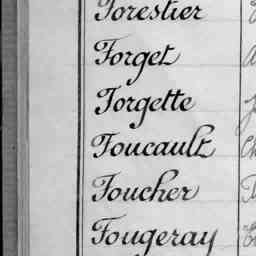 Forestier
Forget
Forgette
Foucault
Foucher
Fougeray